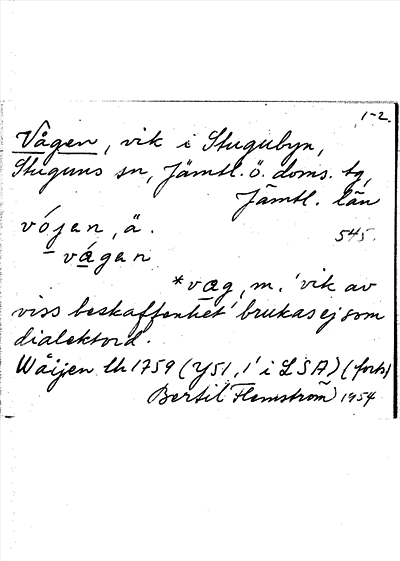 1-2.
Vågen, vik i Stugubyn,
Stuguns sn, Jämtl. ö. doms. tg,
Jämtl. län
vójen, ä. 545.
vágen
*vag, m. 'vik av
viss beskaffenhet' brukas ej som
dialektord.
Wåijen lh 1759 (Y51, 1' i LSA) (forts)
Bertil Flemström 1954